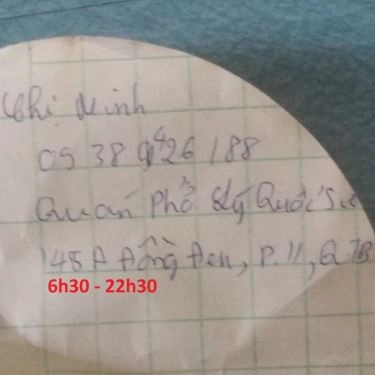 Chị Minh
09 38 426 188
Quán Phở Lý Quốc Sư
145A Đồng Đen, P.11, Q TB
6h30 - 22h30